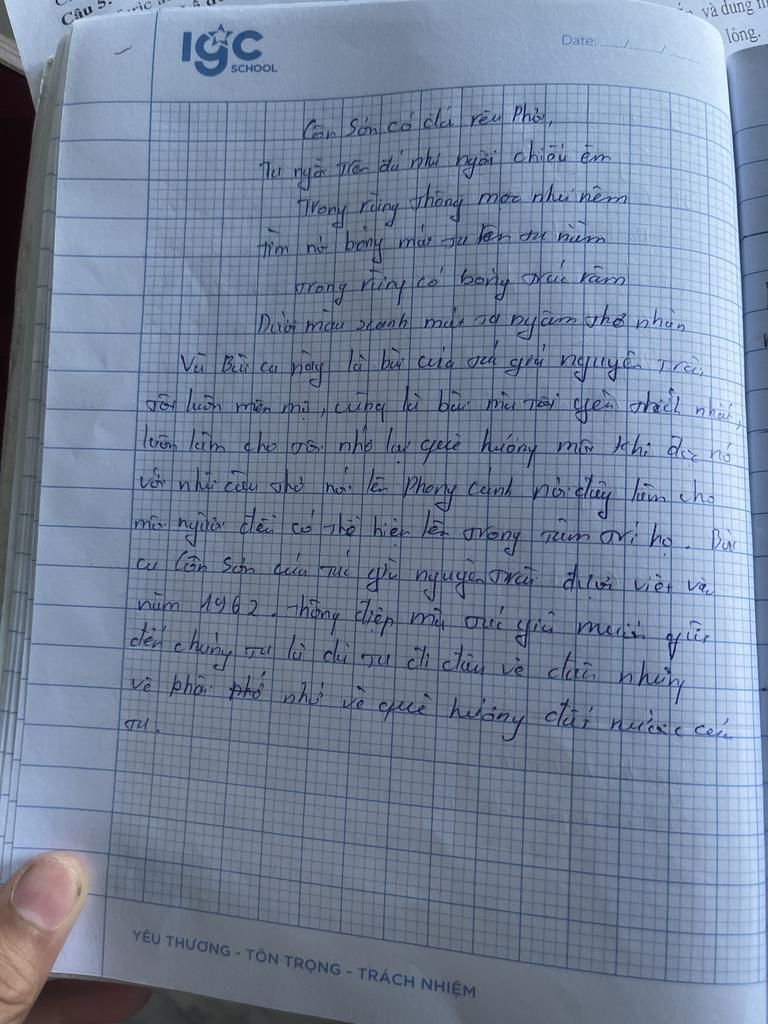 Câu 5:
và dung
lỏng.
IGC
SCHOOL
Date: ....../....../......
Côn Sơn có đá rêu Phơi,
Ta ngồi trên đá như ngồi chiếu êm
Trong rừng thông mọc như nêm
tìm nơ bóng mát ta lên ta nằm
trong rừng có bóng trúc râm
Dưới màu xanh mát ta ngâm thơ nhàn
Và Bài ca này là bài của tác giả nguyễn Trãi,
tôi luôn mến mộ, cũng là bài mà tôi yêu thích nhất,
luôn làm cho tôi nhớ lại quê hương mỗi khi đọc nó
với như câu thơ nói lên Phong cảnh nơi đây làm cho
mỗi người đều có thể hiện lên trong tâm trí họ. Bài
ca Côn Sơn của tác giả nguyễn Trãi được viết vào
năm 1962. thông điệp mà tác giả muốn gửi
đến chúng ta là dù ta đi đâu về đâu nhưng
về phải nhớ về quê hương đất nước của
ta.
YÊU THƯƠNG - TÔN TRỌNG - TRÁCH NHIỆM